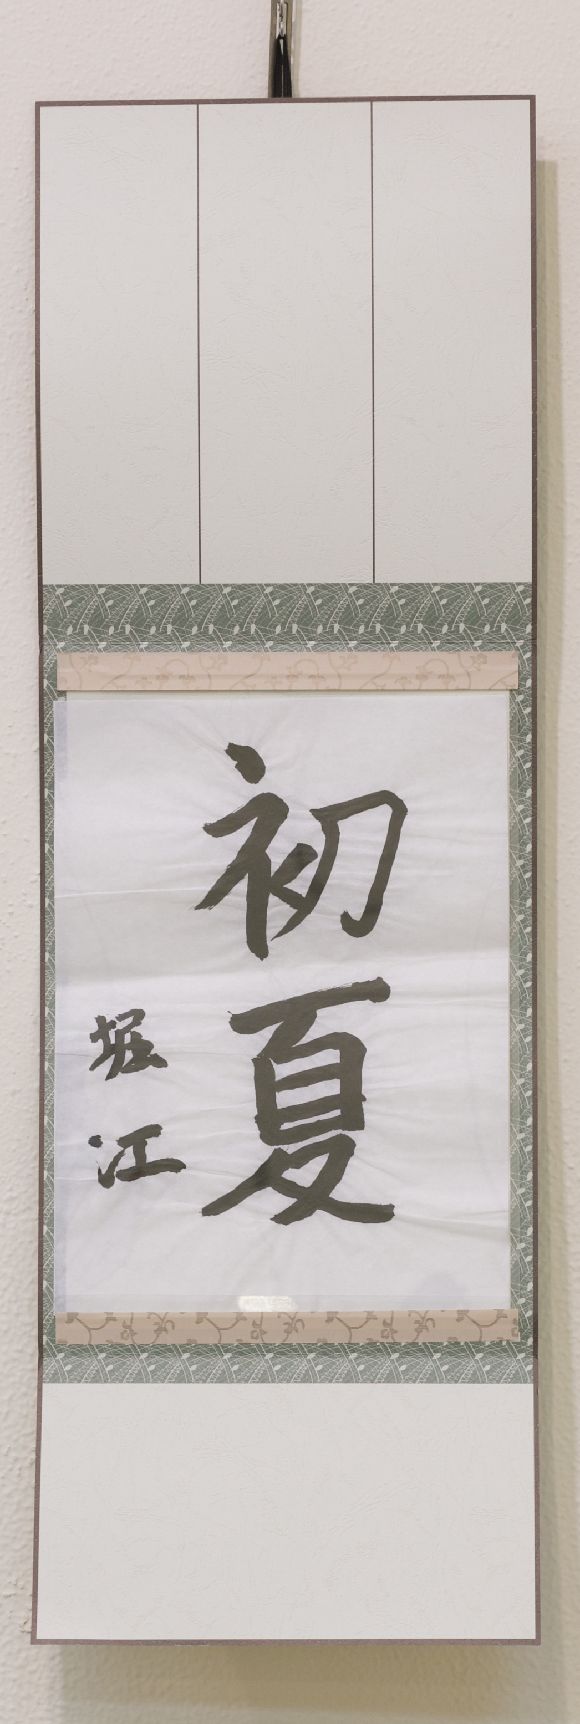 初夏
堀江